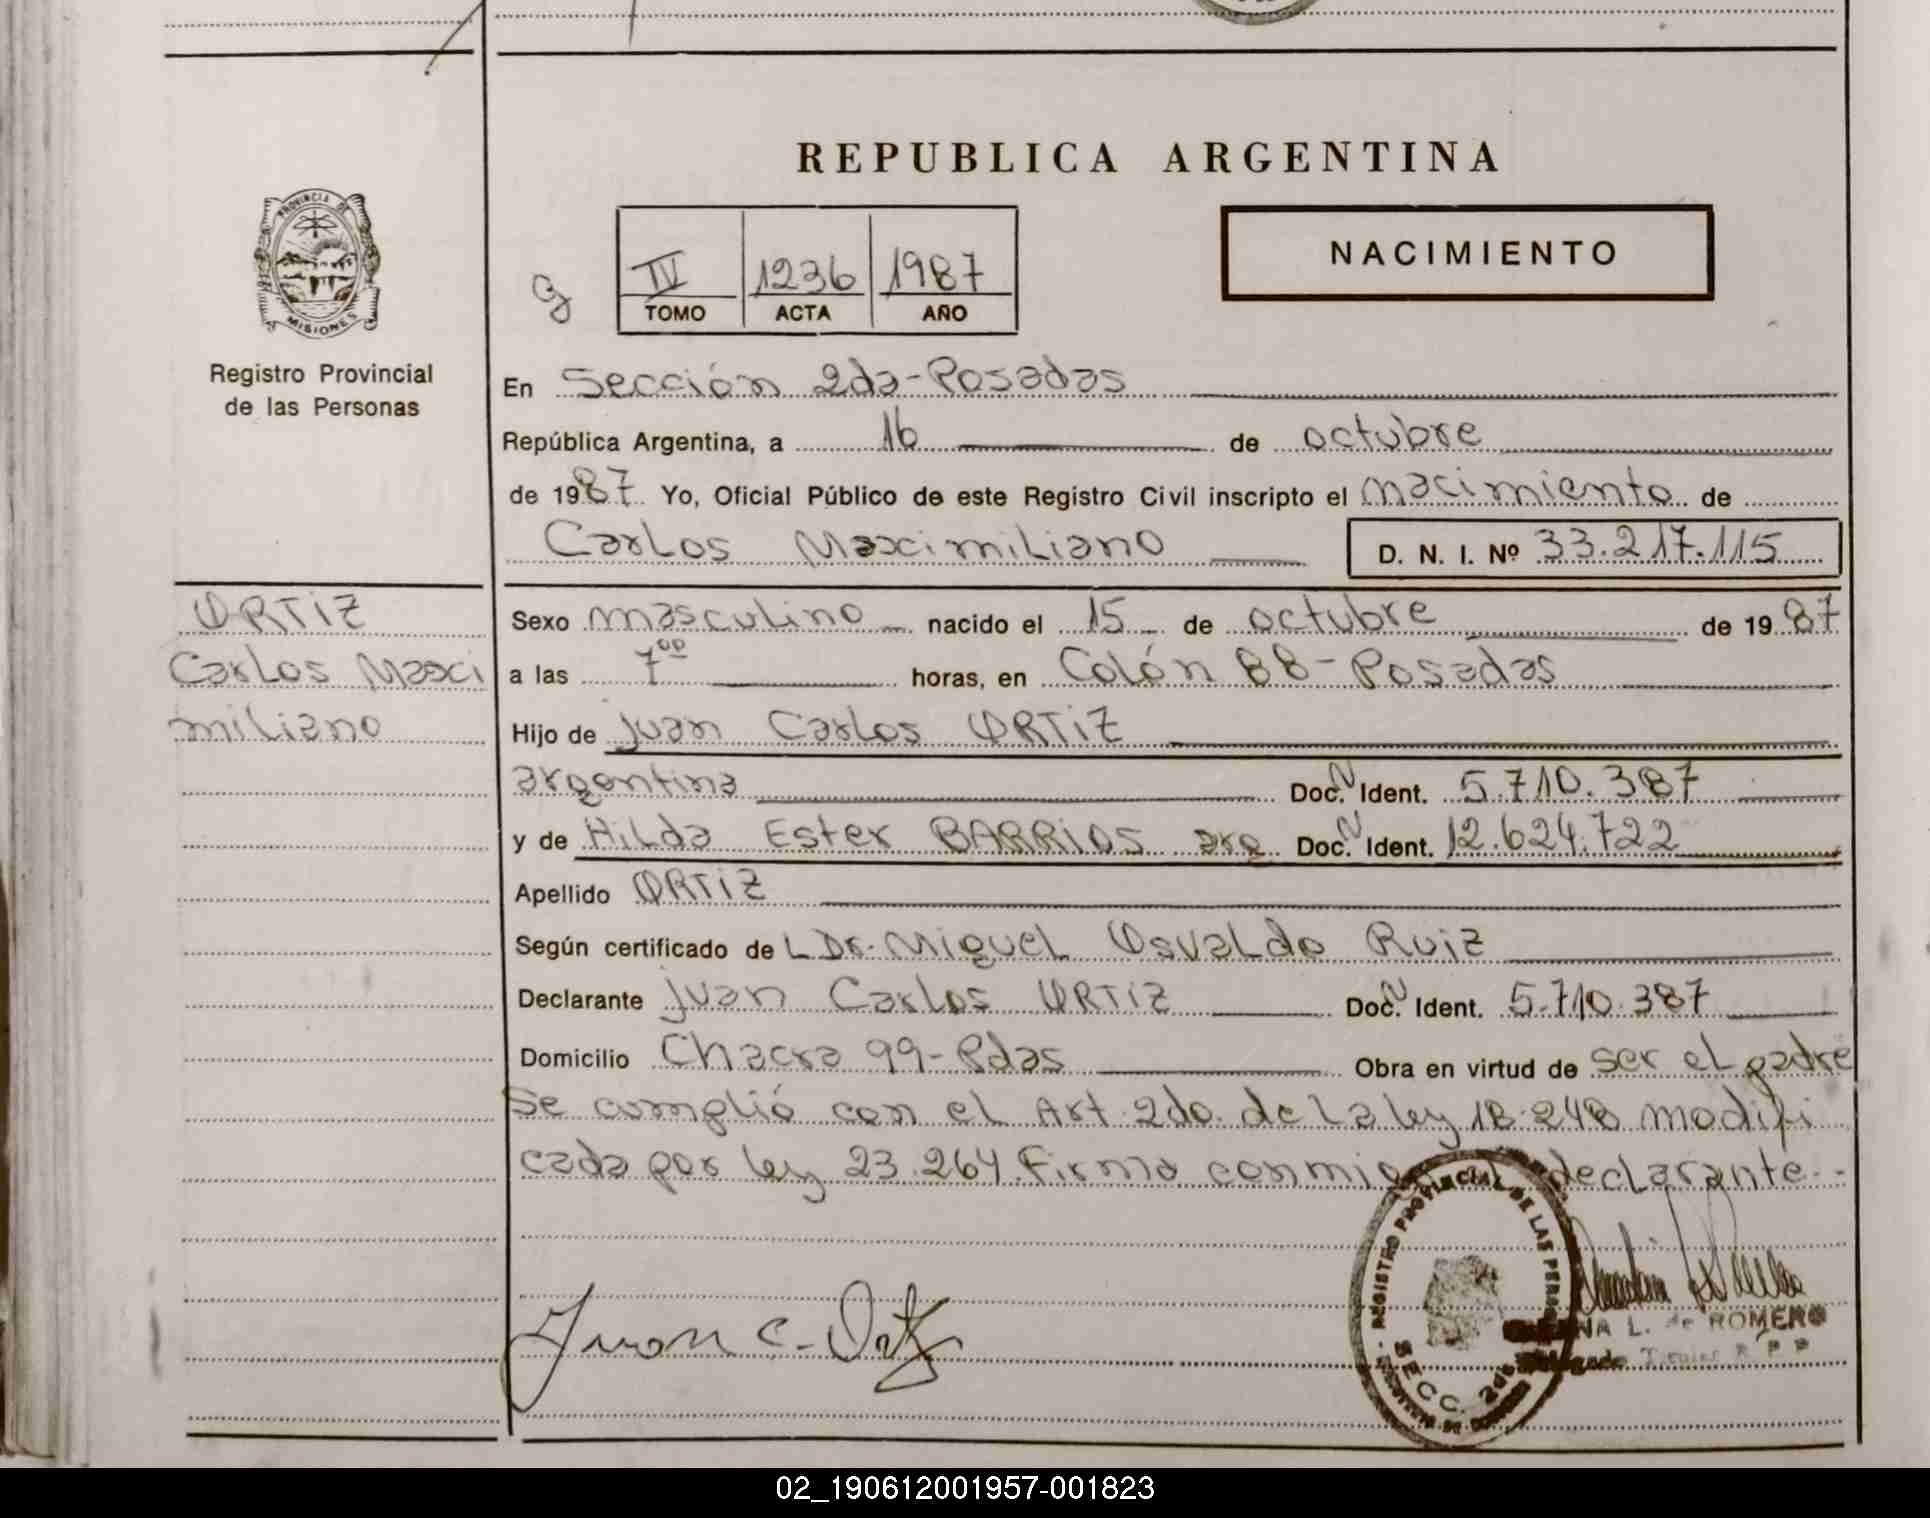 REPUBLICA ARGENTINA
PROVINCIA DE
MISIONES
Registro Provincial
de las Personas
IV 1236 1987
TOMO ACTA AÑO
NACIMIENTO
En Sección 2da-Posadas
República Argentina, a 16 de octubre
de 1987 Yo, Oficial Público de este Registro Civil inscripto el nacimiento de
Carlos Maximiliano D. N. I. Nº 33.217.115
ORTIZ
Carlos Maxi
miliano
Sexo masculino nacido el 15 de octubre de 1987
a las 7⁰⁰ horas, en Colón 88-Posadas
Hijo de Juan Carlos ORTIZ
argentina Doc. N Ident. 5.710.387
y de Hilda Ester BARRIOS arg Doc. N Ident. 12.624.722
Apellido ORTIZ
Según certificado de L Dr. Miguel Osvaldo Ruiz
Declarante Juan Carlos ORTIZ Doc. N Ident. 5.710.387
Domicilio Chacra 99-Pdas Obra en virtud de ser el padre
Se cumplió con el Art. 2do. de la ley 18.248 modifi
cada por ley 23.264. Firma conmigo declarante.-
REGISTRO PROVINCIAL DE LAS PERSONAS
SECC. 2da
Juan C. Ortiz
L. de ROMERO
Titular R P P
02_190612001957-001823